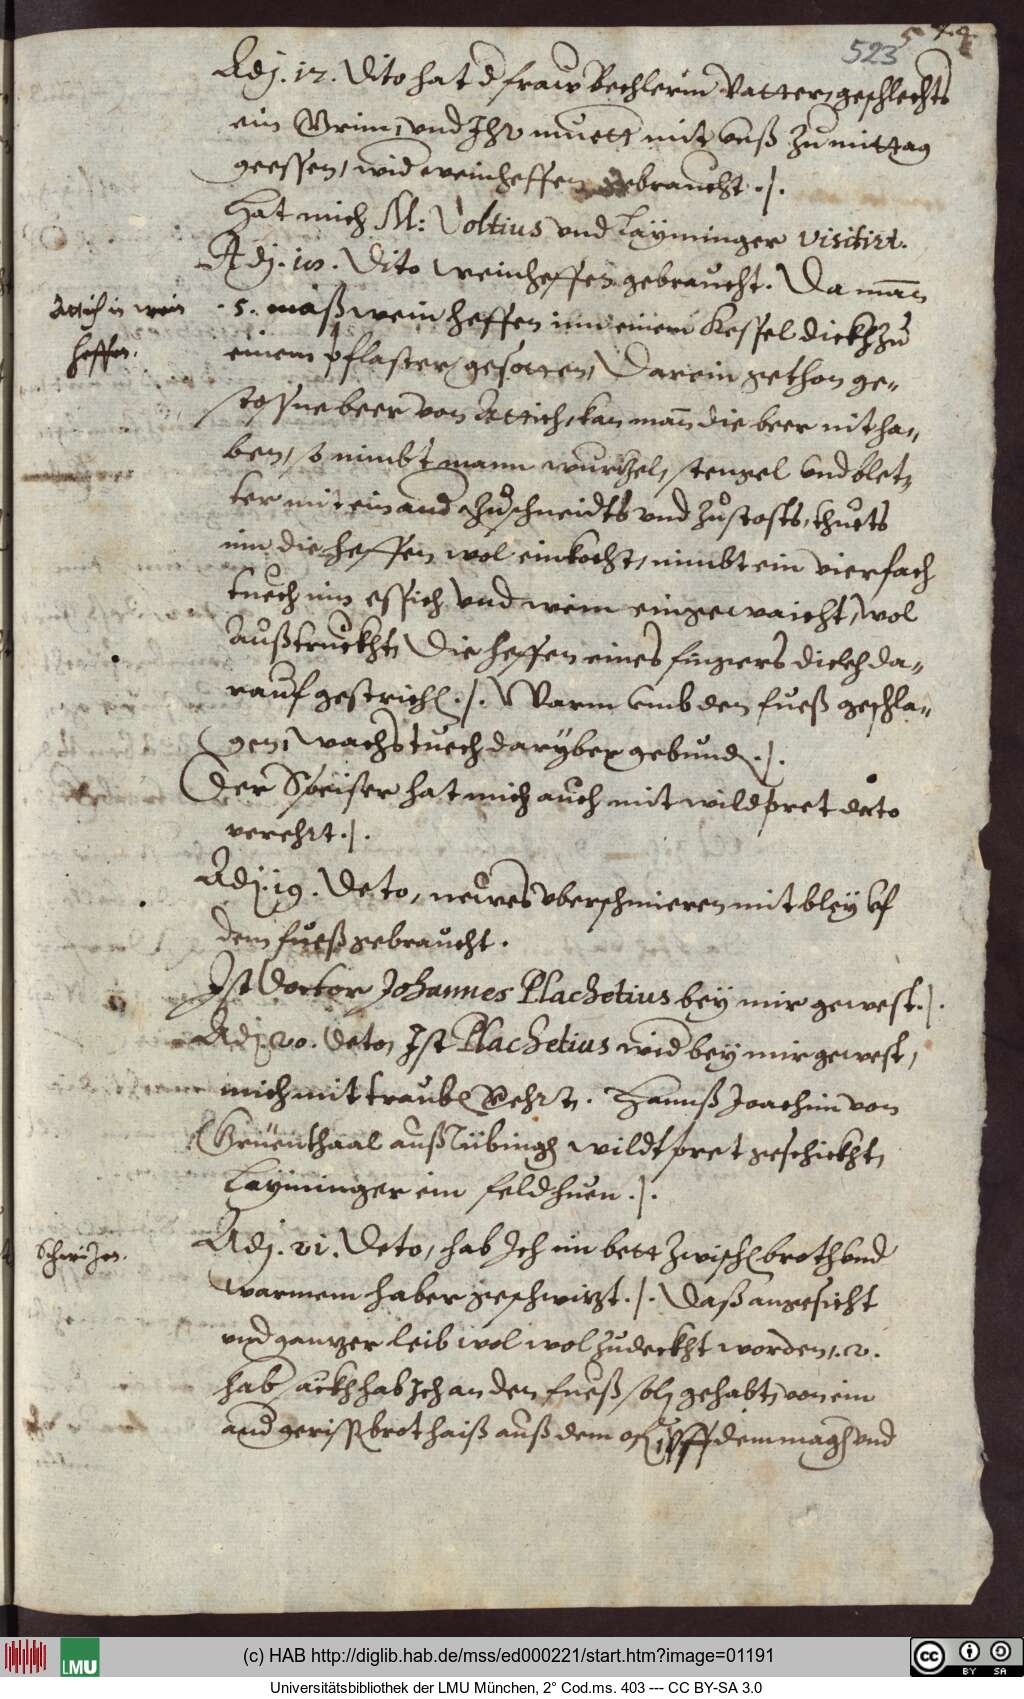 523
Adj. 17. Dito hat d fraw Bechlerin Vatter, geschlechts
ein Grim, und Ihr muett mit unß zu mittag
geessen, wid weinheffen gebraucht ./.
Hat mich M: Voltius und Layminger visitirt.
Adj. 18. Dito weinheffen gebraucht. Da mann
Attich in wein
heffen.
5. maß wein heffen inn einem Kessel dickh zu
einem pflaster gesotten, Darein gethon ge„
stossne beer von Attich, kan man die beer nit ha„
ben, so nimbt mann wurtzel, stengel und blet„
ter mit einand zuschneidts und zustosts, thuets
inn die heffen wol einkocht, nimbt ein vierfach
tuech inn essich und wein eingewaicht, wol
Außtruckht, Die heffen eines fingers dickh da„
rauf gestrich ./. Warm umb den fueß geschla„
gen, wachstuech darüber gebund ./.
Der Speiser hat mich auch mit wildpret deto
verehrt ./.
Adj. 19. Deto, newes uberschmieren mit bley uf
dem fueß gebraucht.
Ist Doctor Johannes Plachetius bey mir gewest ./.
Adj. 20. Deto, Ist Plachetius wid bey mir gewest,
mich mit traub verehrt. Hannß Joachim von
Grüenthaal auß Tübingen wildtpret geschickht,
Layminger ein feldhuen ./.
Schwizen.
Adj. 21. Deto, hab Ich im bett zwisch broth und
warmem haber geschwizt ./. Daß angesicht
und gantzer leib wol wol zudeckht worden, 2.
hab säckh hab Ich an den fueß soln gehabt, von ein
and geriss brot haiß auß dem off uff dem magen und
(c) HAB http://diglib.hab.de/mss/ed000221/start.htm?image=01191
LMU
cc BY SA
Universitätsbibliothek der LMU München, 2° Cod.ms. 403 --- CC BY-SA 3.0